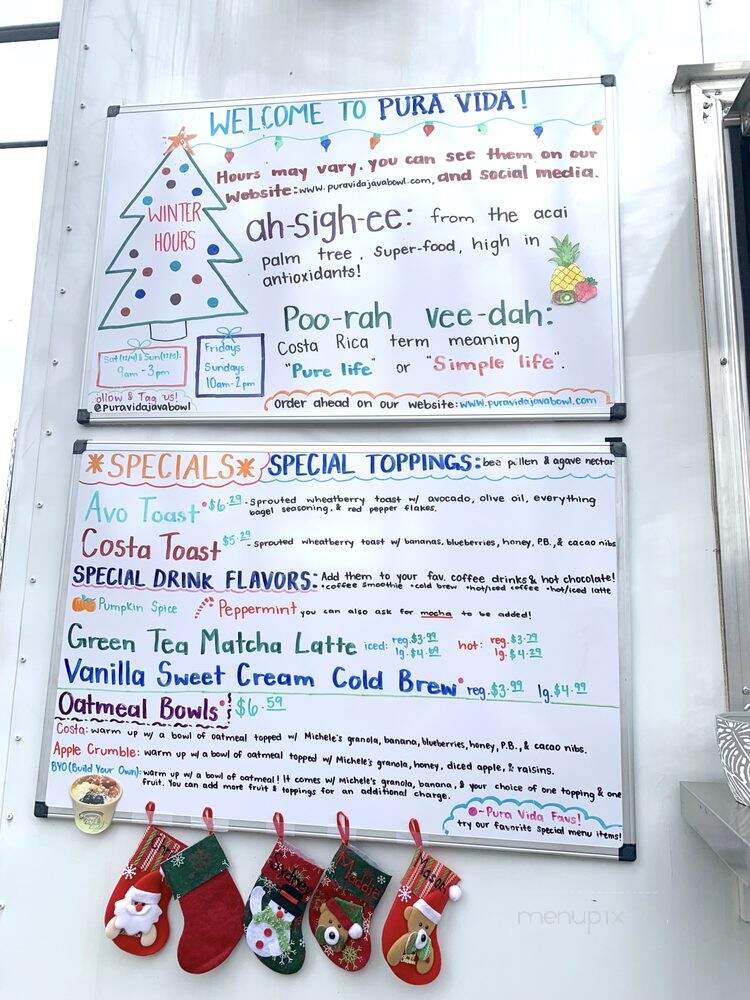 WELCOME TO PURA VIDA!
Hours may vary. you can see them on our
website: www.puravidajavabowl.com, and social media.
WINTER
HOURS
ah-sigh-ee: from the acai
palm tree. Super-food, high in
antioxidants!
Poo-rah vee-dah:
Costa Rica term meaning
"Pure life" or "Simple life".
9am-3pm
Fridays
-
Sundays
10am-2pm
ollow & Tag us!
@puravidajavabowl
Order ahead on our website: www.puravidajavabowl.com
*SPECIALS* SPECIAL TOPPINGS: bee pollen & agave nectar
Avo Toast $6.29 - Sprouted wheatberry toast w/ avocado, olive oil, everything
bagel seasoning, & red pepper flakes.
Costa Toast $5.29 - Sprouted wheatberry toast w/ bananas, blueberries, honey, P.B., & cacao nibs
SPECIAL DRINK FLAVORS: Add them to your fav. coffee drinks & hot chocolate!
•coffee smoothie •cold brew •hot/iced coffee •hot/iced latte
Pumpkin Spice Peppermint you can also ask for mocha to be added!
Green Tea Matcha Latte iced: reg. $3.99 hot: reg. $3.79
lg. $4.69 lg. $4.29
Vanilla Sweet Cream Cold Brew reg. $3.99 lg. $4.99
Oatmeal Bowls $6.59
Costa: warm up w/ a bowl of oatmeal topped w/ Michele's granola, banana, blueberries, honey, P.B., & cacao nibs.
Apple Crumble: warm up w/ a bowl of oatmeal topped w/ Michele's granola, honey, diced apple, & raisins.
BYO (Build Your Own): warm up w/ a bowl of oatmeal! It comes w/ Michele's granola, banana, & your choice of one topping & one
fruit. You can add more fruit & toppings for an additional charge.
-Pura Vida Favs!
try our favorite special menu items!
Sydney
Maddie
Mason
menupix